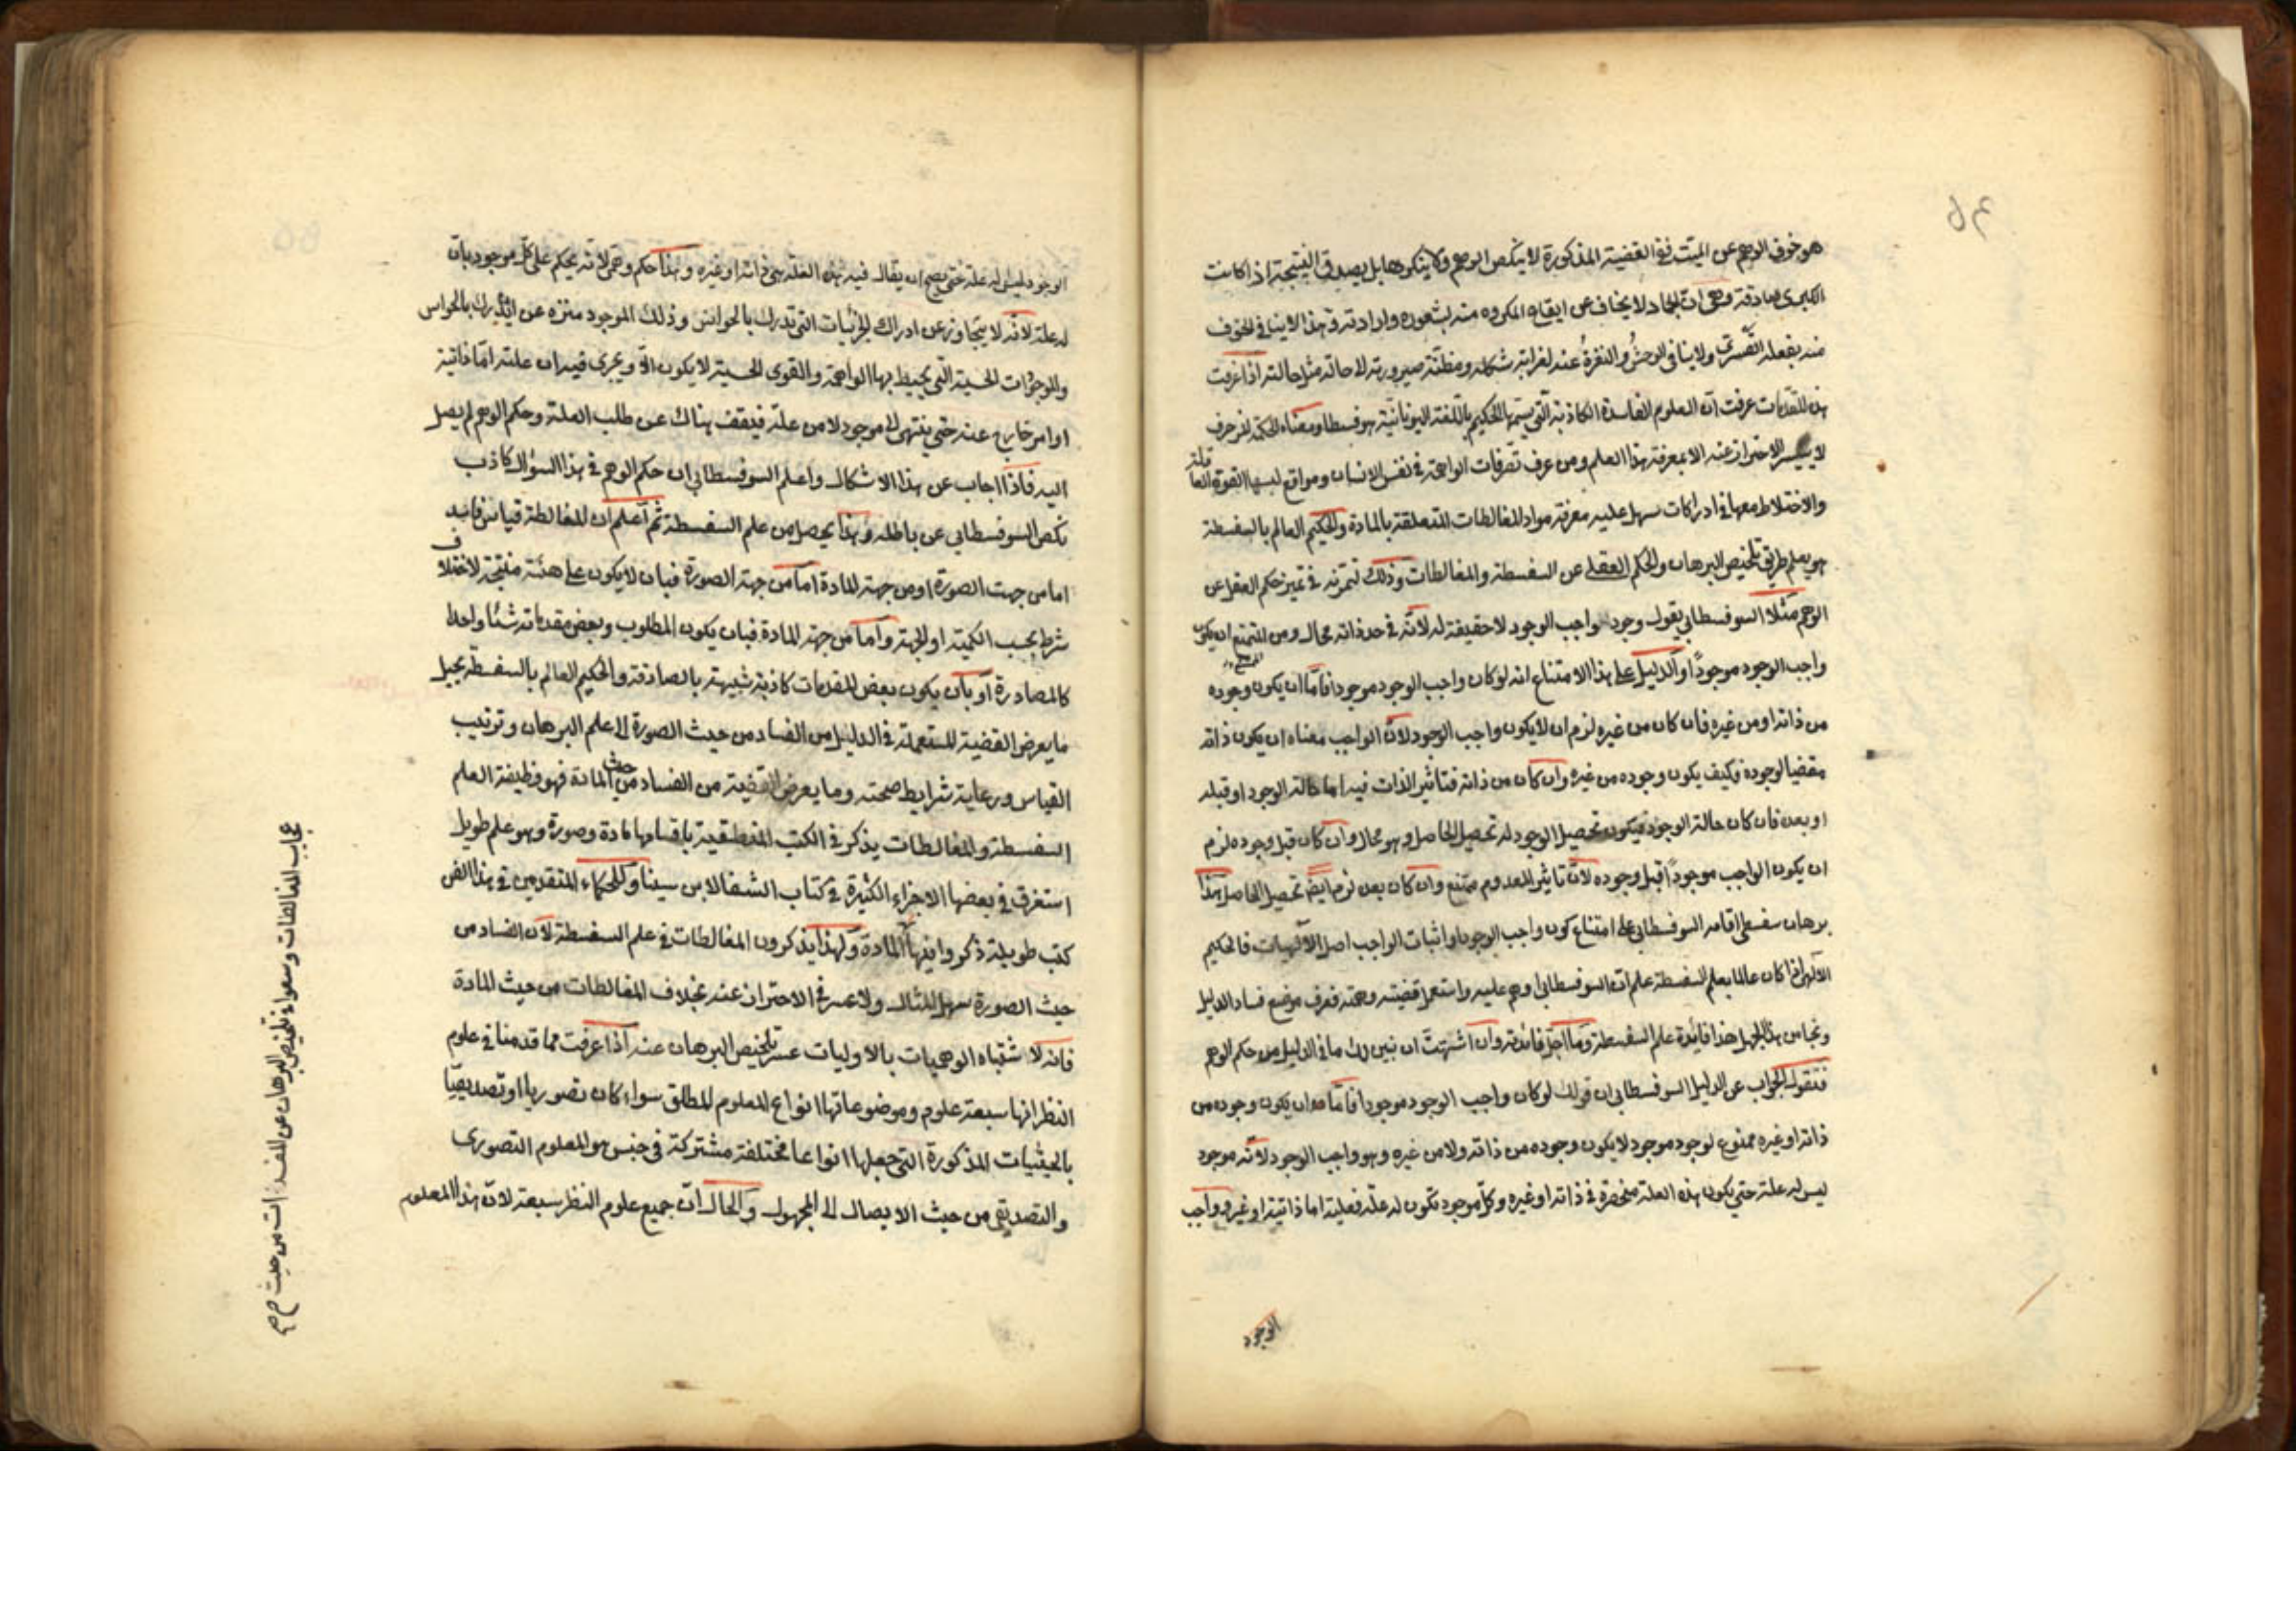 هو خوف الوهم عن الميت ففي القضية المذكورة لا ينكص الوهم ولا ينكرها بل يصدق النتيجة اذا كانت
الكبرى صادقة وهي ان الجماد لا يخاف عن ايقاع المكروه منه بشعوره وارادته وهذا لا ينافي الخوف
منه بفعله القسري ولا ينافي الوحش والنفرة عنه لغرابة شكله ومظنة صيرورته لا حاله مثل حالته اذا عرفت
هذه المقدمات عرفت ان العلوم الفاسدة الكاذبة التي يسميها الحكيم باللغة اليونانية هو فسطا ومعناه الحكمة المزخرف
لا يتيسر الاحتراز عنه الا بمعرفة هذا العلم ومن عرف تصرفات الواهمة في نفس الانسان ومواقع لبسها القوة العاقلة
والاختلاط معها في ادراكات سهل عليه معرفة مواد المغالطات المتعلقة بالمادة والحكيم العالم بالسفسطة
هو يعلم طريق تلخيص البرهان والحكم العقلي عن السفسطة والمغالطات وذلك تمرته في تميز حكم العقل عن
الوهم مثلا السوفسطائي يقول وجود واجب الوجود لا حقيقة له لانه في حد ذاته محال ومن الممتنع ان يكون
واجب الوجود موجودا والدليل على هذا الامتناع انه لو كان واجب الوجود موجودا فاما ان يكون وجوده
من ذاته او من غيره فان كان من غيره لزم ان لا يكون واجب الوجود لان الواجب معناه ان يكون ذاته
مقضيا لوجوده فكيف يكون وجوده من غيره وان كان من ذاته فتاثير الذات فيه اما حالة الوجود او قبله
او بعده فان كان حالة الوجود فيكون تحصيل الوجود له تحصيل الحاصل وهو محال وان كان قبل وجوده لزم
ان يكون الواجب موجودا قبل وجوده لان تاثير المعدوم ممتنع وان كان بعده لزم ايضا تحصيل الحاصل هذا
برهان سفسطي اقامه السوفسطائي على امتناع كون واجب الوجود واثبات الواجب اصل الالهيات فالحكيم
الالهي اذا كان عالما بعلم السفسطة علم ان السوفسطائي اوهم عليه واستعمل قضيته وهمته فعرف موضع فساد الدليل
ونجا من هذا الجهل هذا فائدة علم السفسطة وما اجل فائدته وان اشتهيت ان نبين لك ما في الدليل من حكم الوهم
فنقول الجواب عن الدليل السوفسطائي ان قولك لو كان واجب الوجود موجودا فاما ان يكون وجوده من
ذاته او غيره ممنوع لوجود موجود لا يكون وجوده من ذاته ولا من غيره وهو واجب الوجود لانه موجود
ليس له علة حتى يكون هذه العلة منحصرة في ذاته او غيره وكل موجود تكون له علة فعلية اما ذاتية او غيره وواجب
الوجود
الوجود ليس له علة حتى يصح ان يقال فيه هذه العلة هي ذاته او غيره وهذا حكم وهمي لانه يحكم على كل موجود بان
له علة لانه لا يتجاوز عن ادراك الجزئيات التي تدرك بالحواس وذلك الموجود منزه عن ان يدرك بالحواس
والموجودات الحسية التي يحيط بها الواهمة والقوى الحسية لا يكون الا ويجرى فيه ان علته اما ذاتية
او امر خارج عنه حتى ينتهى الى موجود لا من علة فيقف هناك عن طلب العلة وحكم الوهم لم يصل
اليه فاذا اجاب عن هذا الاشكال واعلم السوفسطائي ان حكم الوهم في هذا السؤال كاذب
نكص السوفسطائي عن باطله وهذا يحصل من علم السفسطة ثم اعلم ان المغالطة قياس فاسد
اما من جهت الصورة او من جهة المادة اما من جهة الصورة فبان لا يكون على هئة منتجة لاختلاف
شرط بحسب الكمية او الجهة واما من جهة المادة فبان يكون المطلوب وبعض مقدماته شيئا واحدا
كالمصادرة او بان يكون بعض المقدمات كاذبة شبيهة بالصادقة والحكيم العالم بالسفسطة يحيل
ما يعرض القضية المستعملة في الدليل من الفساد من حيث الصورة الى علم البرهان وترتيب
القياس ورعاية شرايط صحته وما يعرض القضية من الفساد من حيث المادة فهو وظيفة العلم
السفسطة والمغالطات يذكر في الكتب المنطقية باقسامها مادة وصورة وهو علم طويل
استغرق في بعضها الاجزاء الكثيرة في كتاب الشفا لابن سينا وللحكماء المتقدمين في هذا الفن
كتب طويلة ذكروا فيها المادة ولهذا يذكرون المغالطات في علم السفسطة لان الفساد من
حيث الصورة سهل المثال ولا عسر في الاحتراز عنه بخلاف المغالطات من حيث المادة
فانه لا شتباه الوهميات بالاوليات عسر تلخيص البرهان عنه اذا عرفت مما قدمنا في علوم
النظر انها سبعة علوم وموضوعاتها انواع المعلوم المطلق سواء كان تصوريا او تصديقيا
بالحيثيات المذكورة التي جعلها انواعا مختلفة مشتركة في جنس هو المعلوم التصورى
والتصديقي من حيث الايصال الى المجهول والحال ان جميع علوم النظر سبعة لان هذا المعلوم
المغالطات وسهولة تلخيص البرهان عن المفسدات من حيث